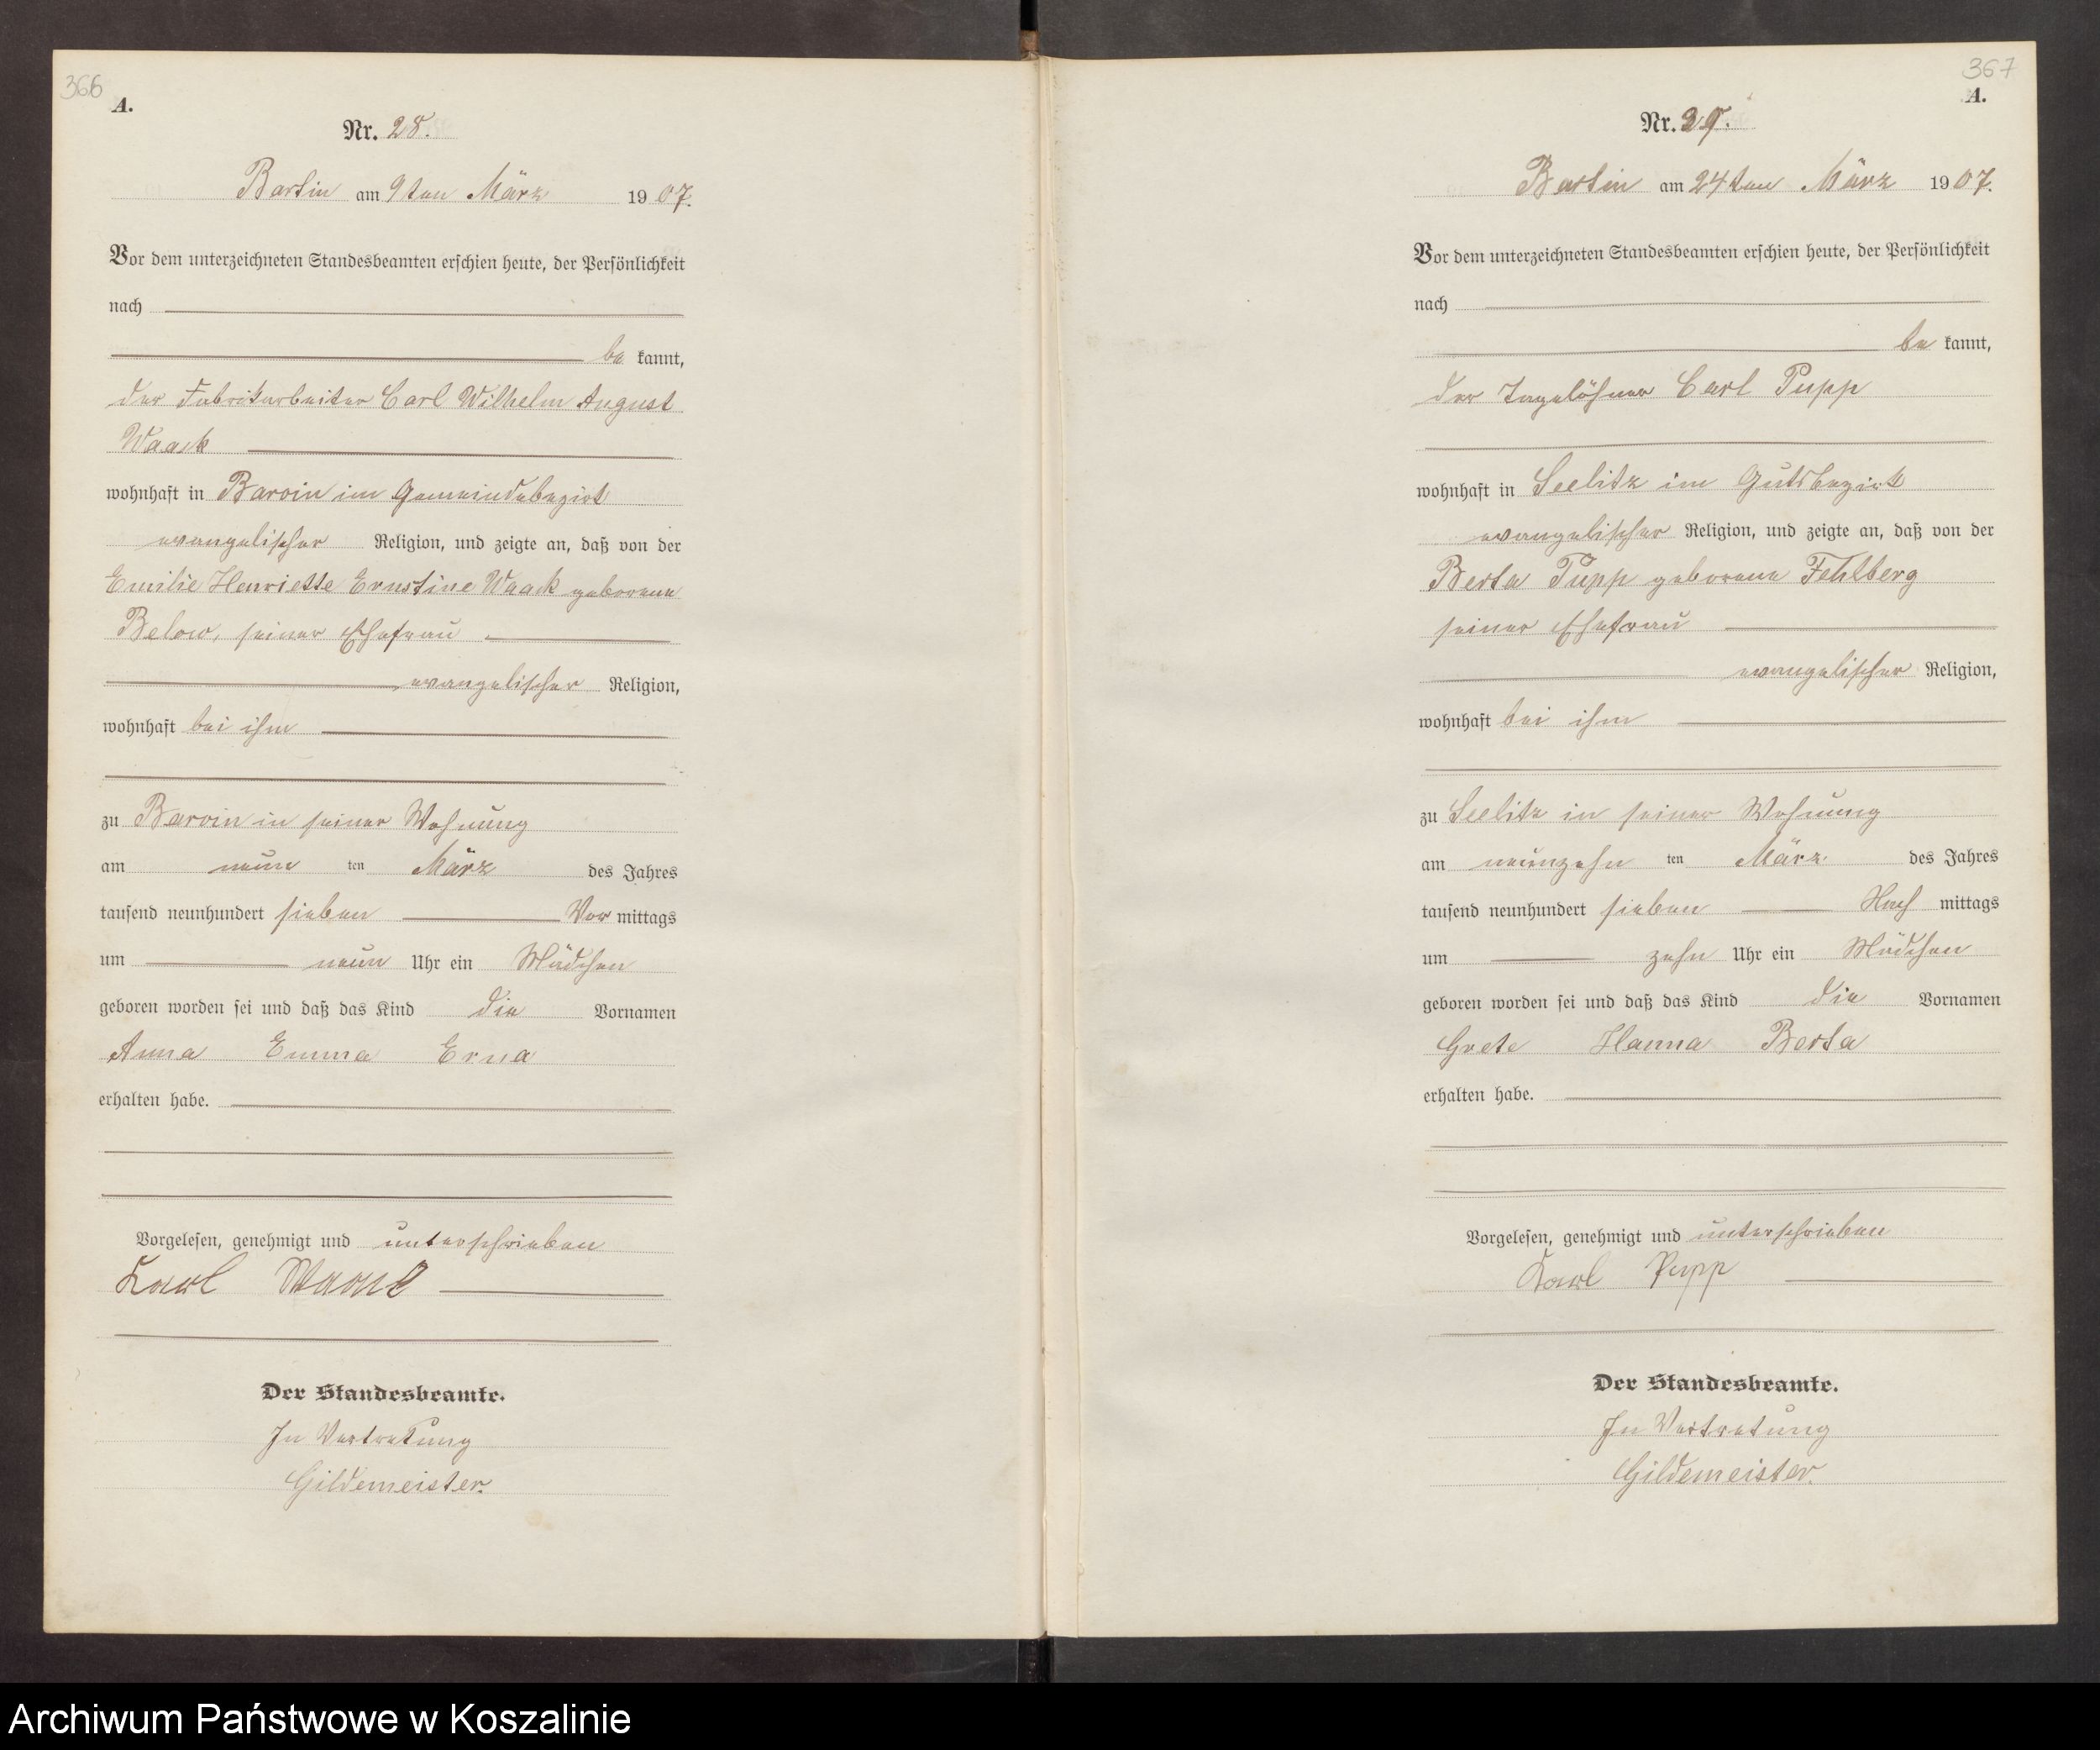 366
A.
Nr. 28.
Bartin am 9ten März 1907.
Vor dem unterzeichneten Standesbeamten erschien heute, der Persönlichkeit
nach
be kannt,
der Fabrikarbeiter Carl Wilhelm August
Waack
wohnhaft in Barvin im Gemeindebezirk
evangelischer Religion, und zeigte an, daß von der
Emilie Henriette Ernstine Waack geborene
Below, seiner Ehefrau
evangelischer Religion,
wohnhaft bei ihm
zu Barvin in seiner Wohnung
am neun ten März des Jahres
tausend neunhundert sieben Vor mittags
um neun Uhr ein Mädchen
geboren worden sei und daß das Kind die Vornamen
Anna Emma Erna
erhalten habe.
Vorgelesen, genehmigt und unterschrieben
Karl Waack
Der Standesbeamte.
In Vertretung
Gildemeister.
367
A.
Nr. 29.
Bartin am 24ten März 1907.
Vor dem unterzeichneten Standesbeamten erschien heute, der Persönlichkeit
nach
be kannt,
der Tagelöhner Carl Pupp
wohnhaft in Seelitz im Gutsbezirk
evangelischer Religion, und zeigte an, daß von der
Berta Pupp geborene Fehlberg
seiner Ehefrau
evangelischer Religion,
wohnhaft bei ihm
zu Seelitz in seiner Wohnung
am neunzehn ten März des Jahres
tausend neunhundert sieben Nach mittags
um zehn Uhr ein Mädchen
geboren worden sei und daß das Kind die Vornamen
Grete Hanna Berta
erhalten habe.
Vorgelesen, genehmigt und unterschrieben
Karl Pupp
Der Standesbeamte.
In Vertretung
Gildemeister.
Archiwum Państwowe w Koszalinie